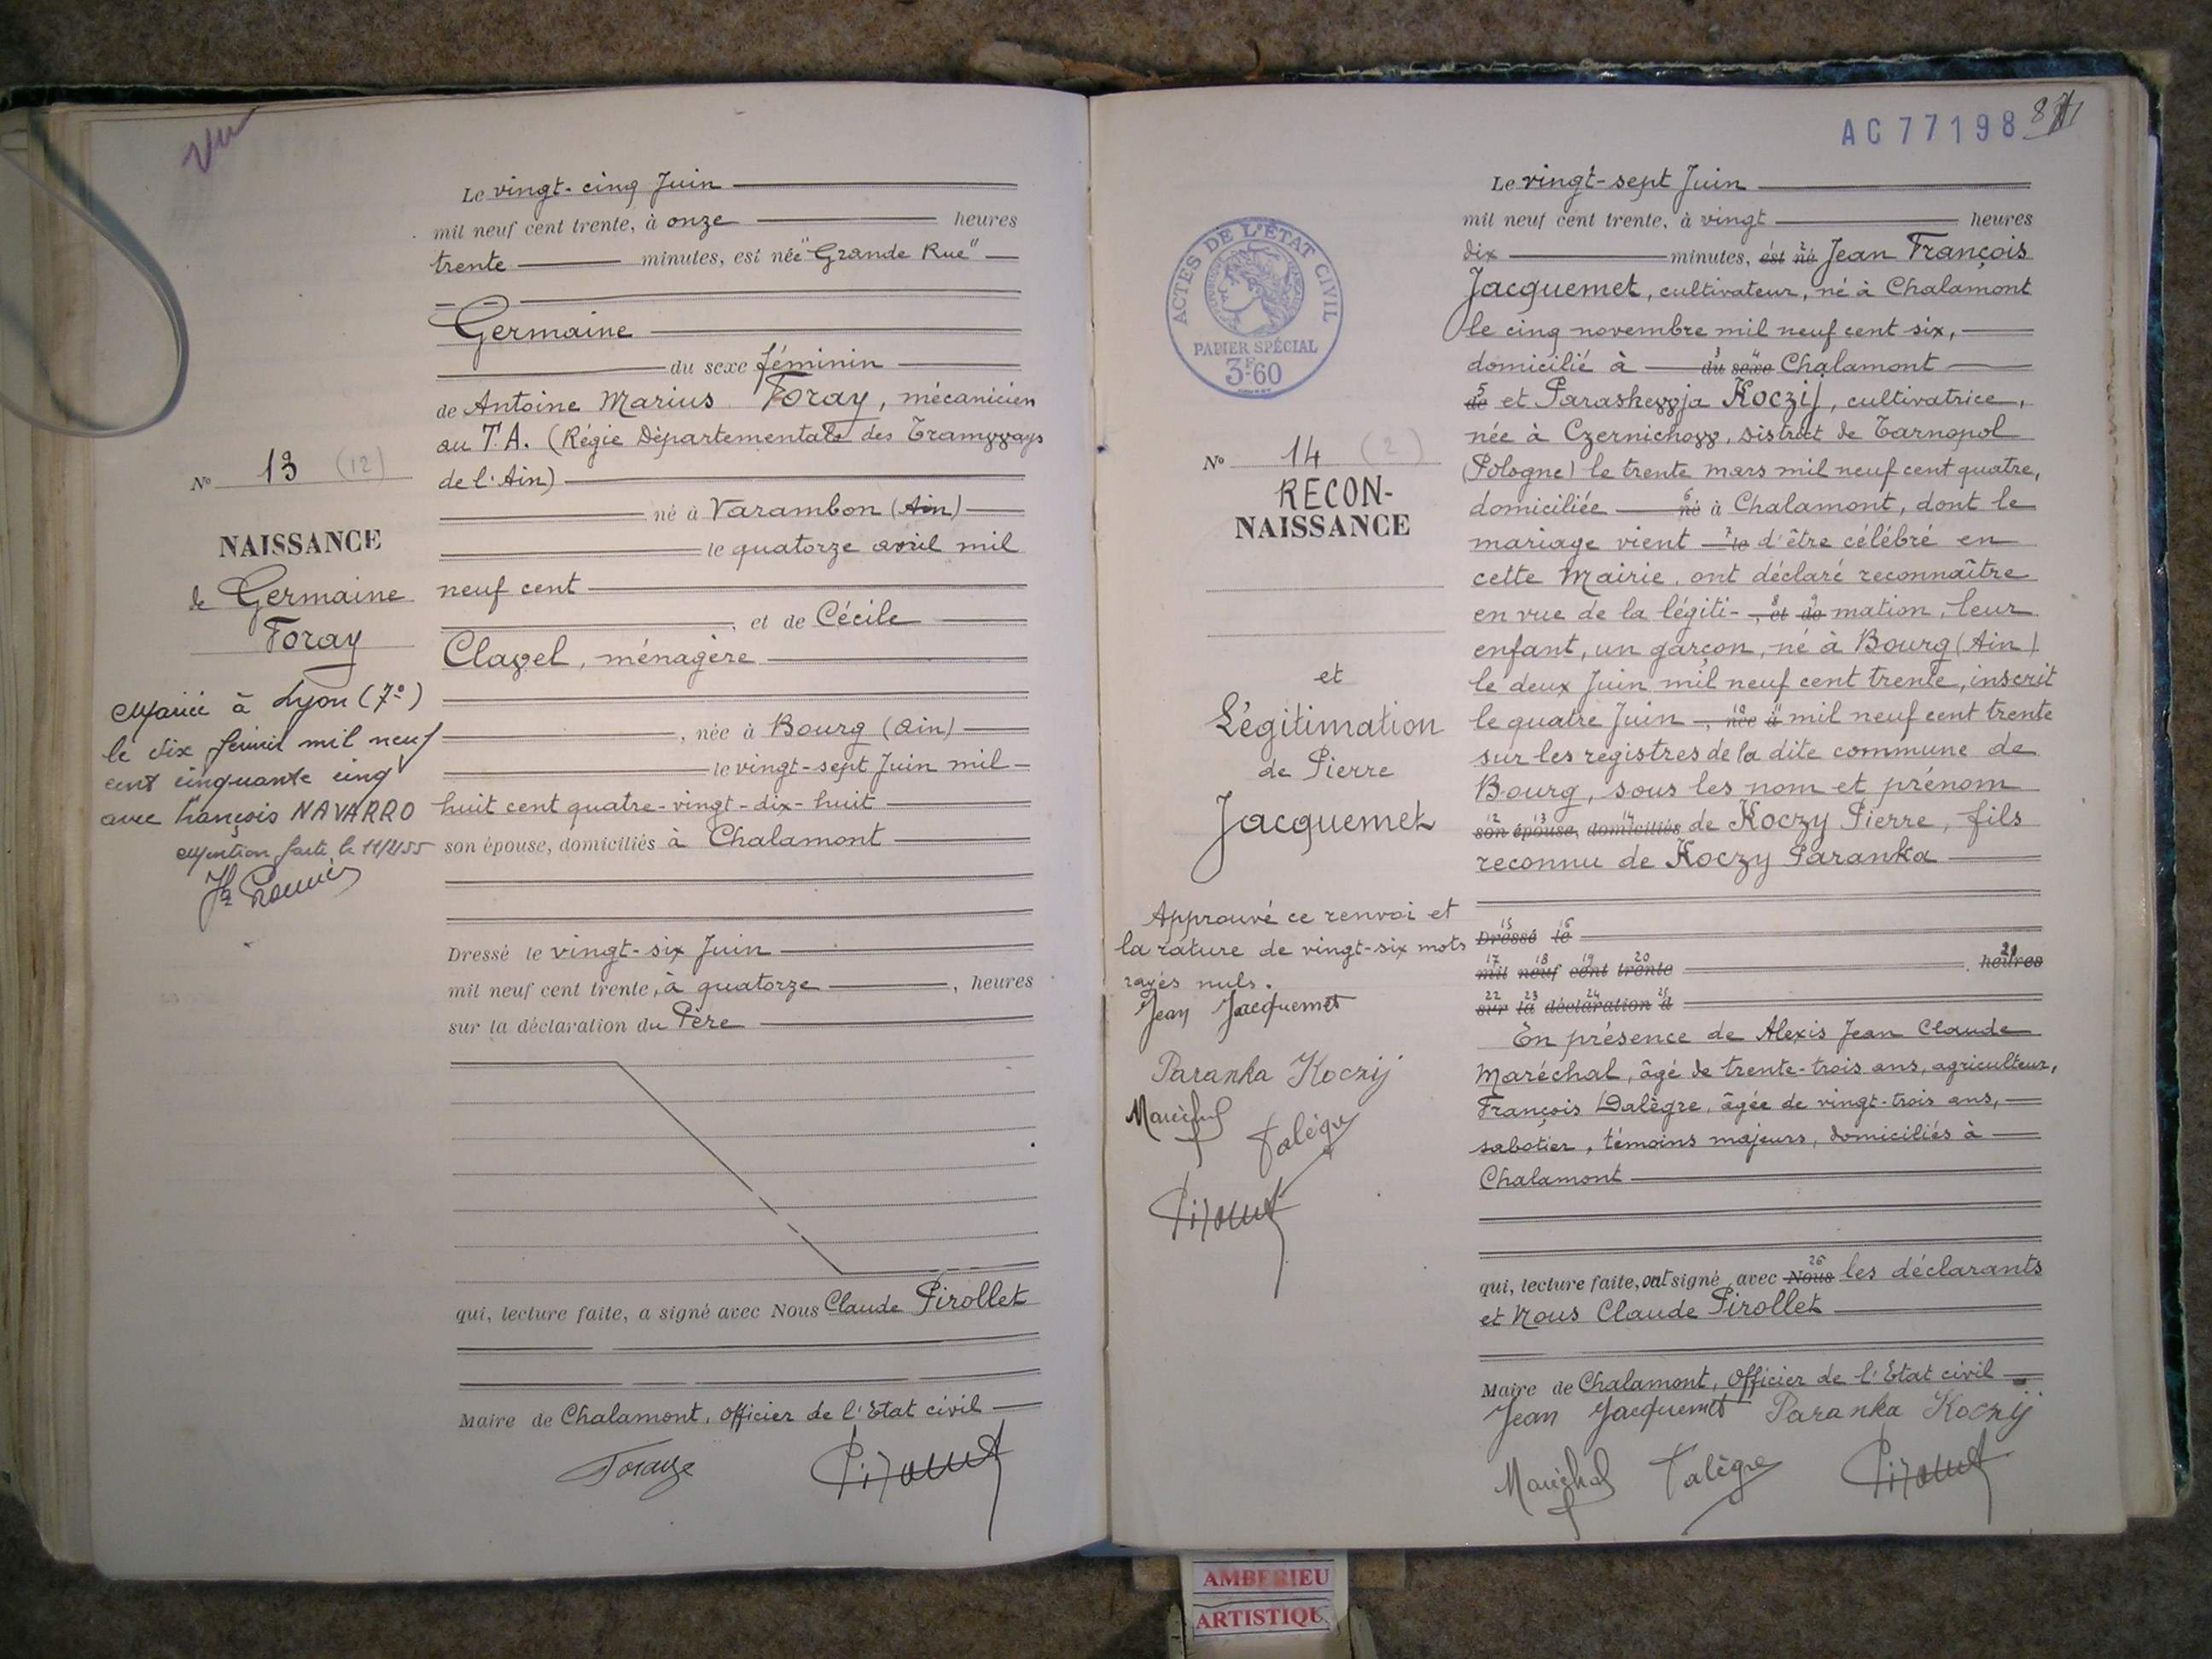 Vu
Le vingt-cinq Juin
mil neuf cent trente, à onze heures
trente minutes, est née "Grande Rue"
Germaine
du sexe féminin
de Antoine Marius Foray, mécanicien
au T.A. (Régie Départementale des Tramways
de l'Ain)
né à Varambon (Ain)
le quatorze avril mil
neuf cent
, et de Cécile
Clavel, ménagère
, née à Bourg (Ain)
le vingt-sept Juin mil
huit cent quatre-vingt-dix-huit
son épouse, domiciliés à Chalamont
Dressé le vingt-six Juin
mil neuf cent trente, à quatorze , heures
sur la déclaration du Père
qui, lecture faite, a signé avec Nous Claude Pirollet
Maire de Chalamont, Officier de l'Etat civil
Foray
Pirollet
No 13 (12)
NAISSANCE
de Germaine
Foray
Mariée à Lyon (7e)
le dix février mil neuf
cent cinquante cinq
avec François NAVARRO
Mention faite, le 11/2/55
AC77198
Le vingt-sept Juin
mil neuf cent trente, à vingt heures
dix minutes, est né Jean François
Jacquemet, cultivateur, né à Chalamont
le cinq novembre mil neuf cent six,
domicilié à du sexe Chalamont
de et Paraskewja Koczij, cultivatrice,
née à Czernichow, district de Tarnopol
(Pologne) le trente mars mil neuf cent quatre,
domiciliée né à Chalamont, dont le
mariage vient le d'être célébré en
cette Mairie, ont déclaré reconnaître
en vue de la légiti- , et de mation, leur
enfant, un garçon, né à Bourg (Ain)
le deux Juin mil neuf cent trente, inscrit
le quatre Juin , née à mil neuf cent trente
sur les registres de la dite commune de
Bourg, sous les nom et prénom
son épouse, domiciliés de Koczy Pierre, fils
reconnu de Koczy Paranka
Dressé le
mil neuf cent trente , heures
sur la déclaration d
En présence de Alexis Jean Claude
Maréchal, âgé de trente-trois ans, agriculteur,
François Dalègre, âgée de vingt-trois ans,
sabotier, témoins majeurs, domiciliés à
Chalamont
qui, lecture faite, ont signé avec Nous les déclarants
et Nous Claude Pirollet
Maire de Chalamont, Officier de l'Etat civil
Jean Jacquemet Paranka Koczij
Maréchal Talègre Pirollet
ACTES DE L'ÉTAT CIVIL
PAPIER SPÉCIAL
3F60
No 14 (2)
RECON-
NAISSANCE
et
Légitimation
de Pierre
Jacquemet
Approuvé ce renvoi et
la rature de vingt-six mots
rayés nuls.
Jean Jacquemet
Paranka Koczij
Maréchal
Talègre
Pirollet
AMBERIEU
ARTISTIQU